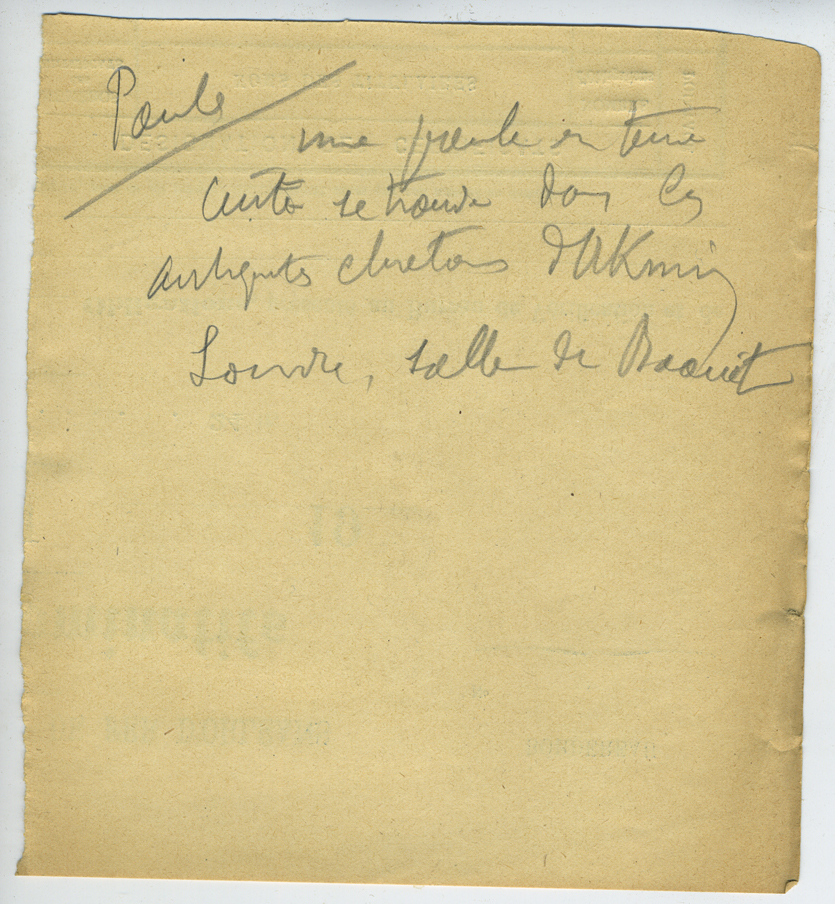 Poule
une poule en terre
cuite se trouve dans les
antiquités chretiens d'AKmin
Louvre, salle de Baouit